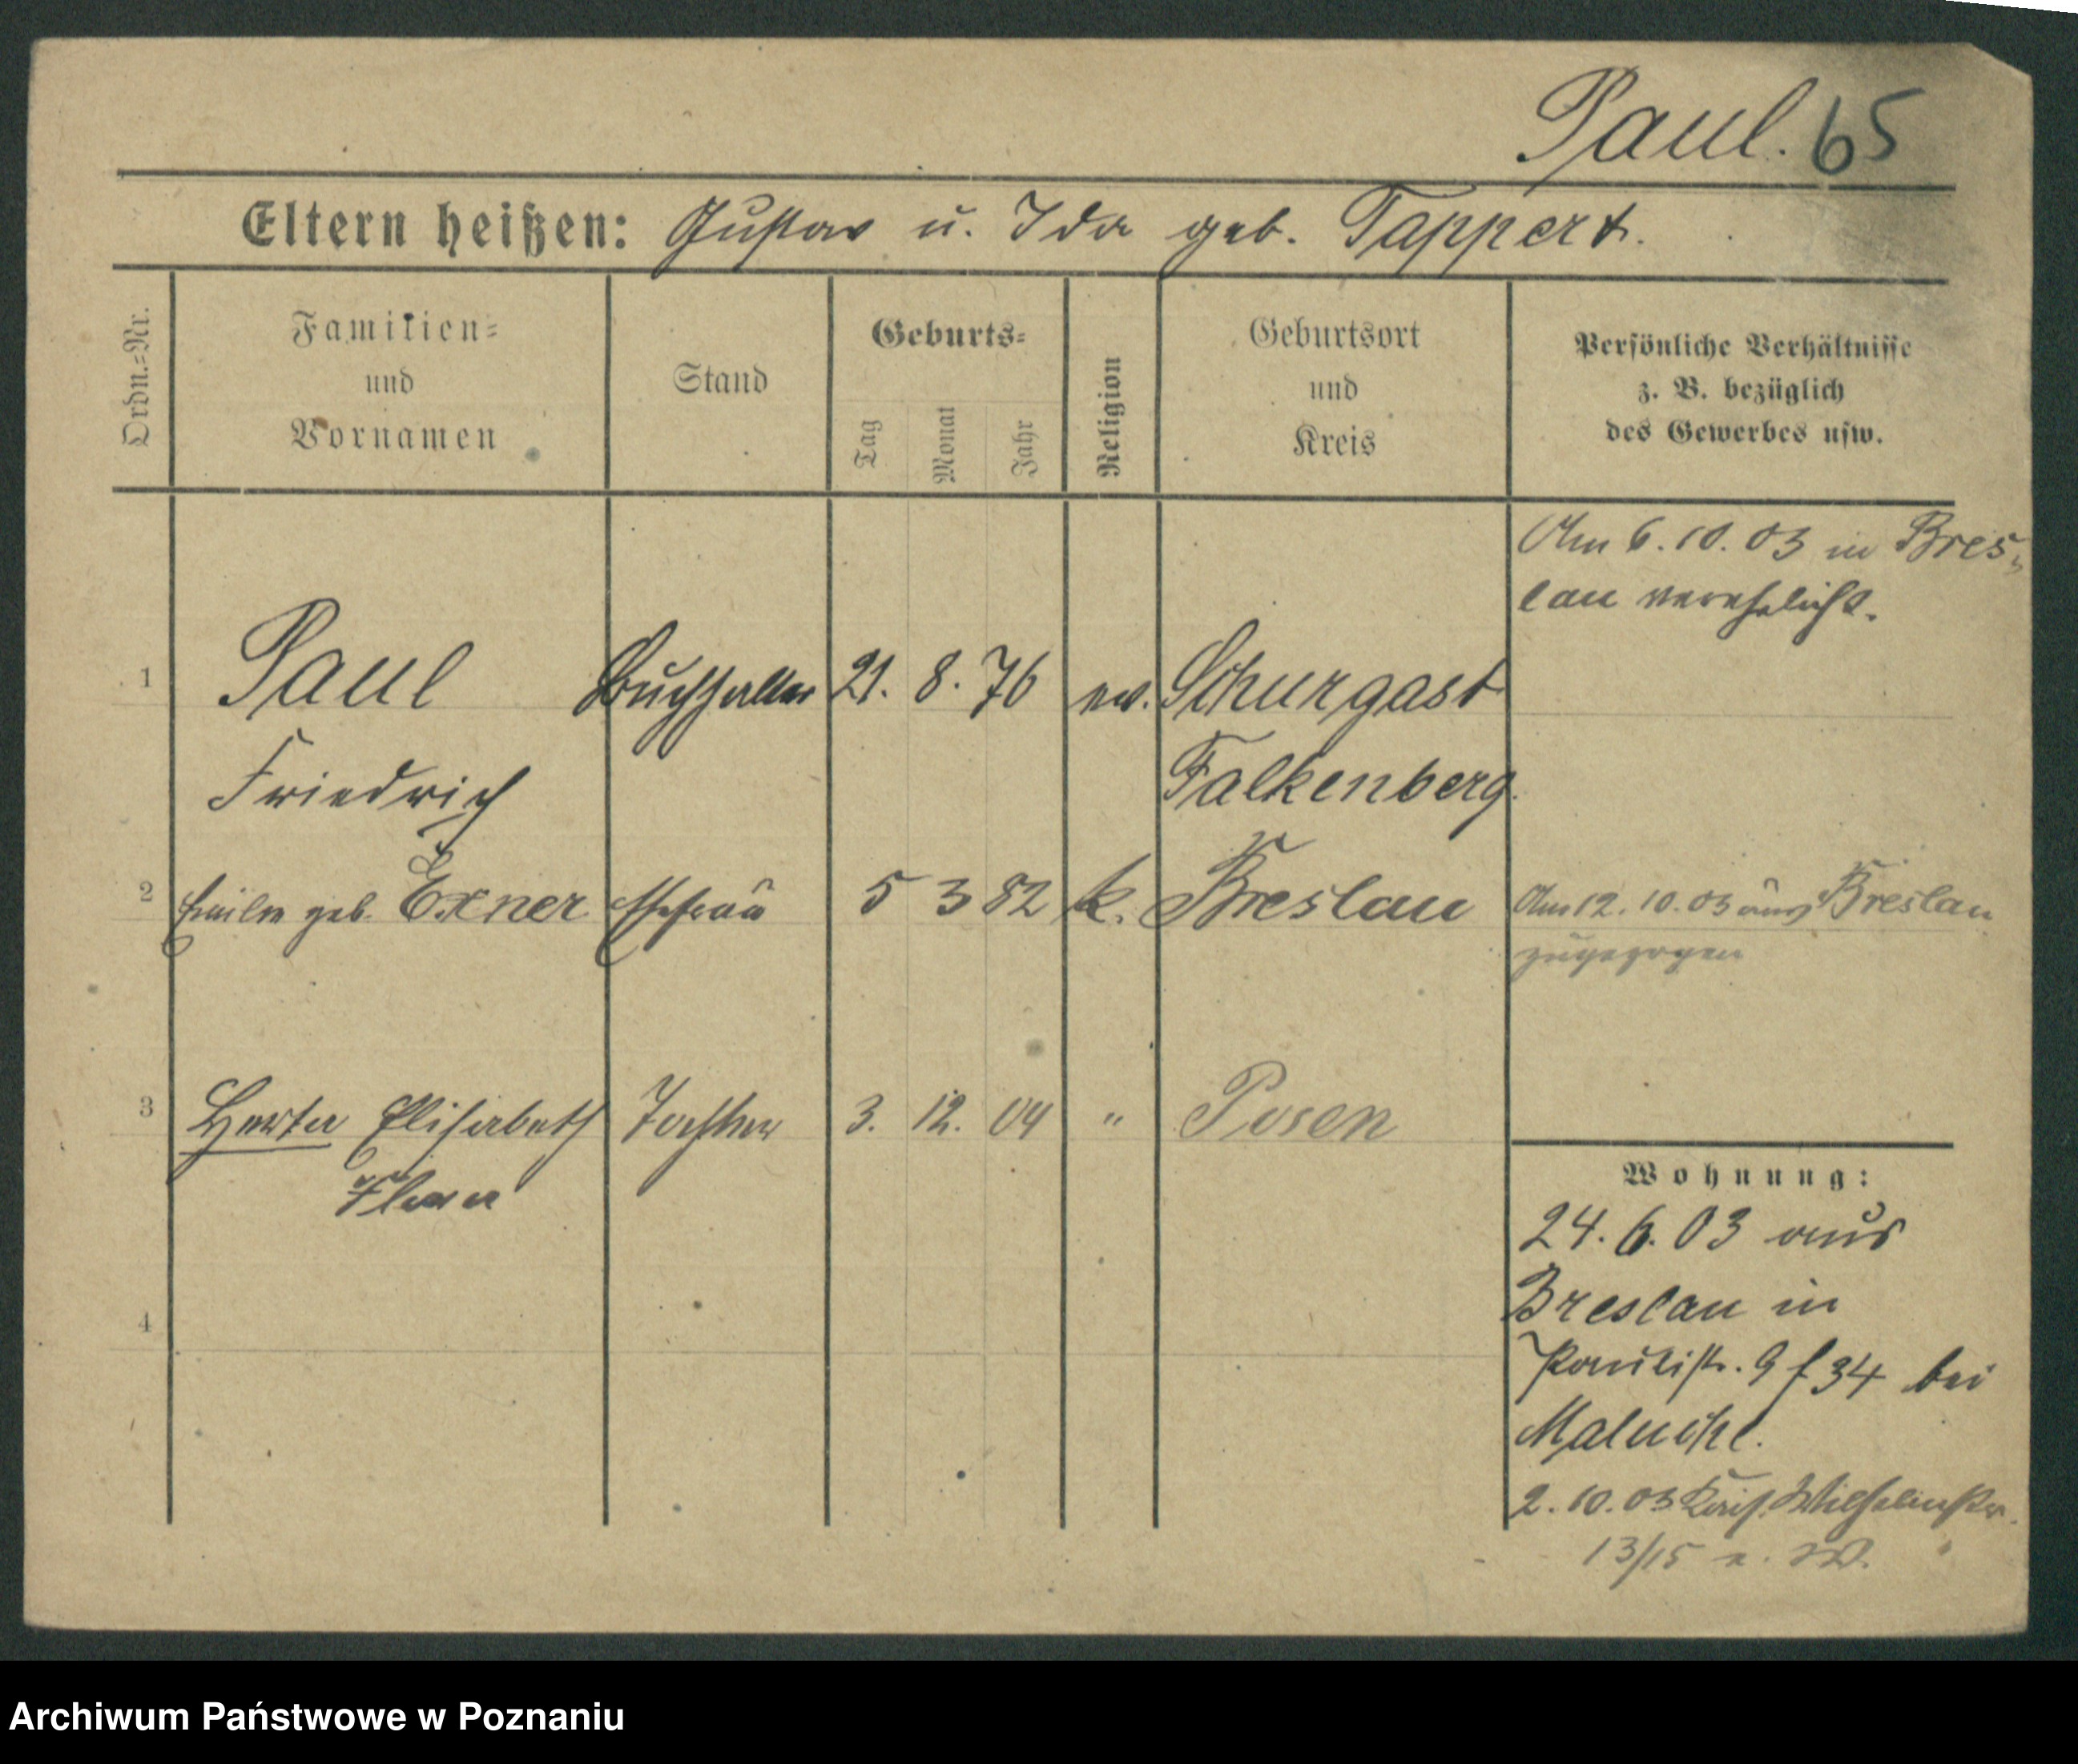 Paul. 65
Eltern heißen: Gustav u. Ida geb. Tappert.
Ordn.=Nr.
Familien=
und
Vornamen
Stand
Geburts=
Tag
Monat
Jahr
Religion
Geburtsort
und
Kreis
Persönliche Verhältnisse
z. B. bezüglich
des Gewerbes usw.
Am 6. 10. 03 in Bres=
lau verehelicht.
1 Paul Buchhalter 21. 8. 76 ev. Schurgast
Friedrich Falkenberg.
2 geb. Exner Ehefrau 5 3 82 k. Breslau Am 12. 10. 03 aus Breslau
zugezogen
3 Herta Elisabeth Tochter 3. 12. 04 " Posen
Wohnung:
24. 6. 03 aus
4 Breslau in
Paulistr. 9 34 bei
2. 10. 03 Wilhelmstr.
13/15
Archiwum Państwowe w Poznaniu